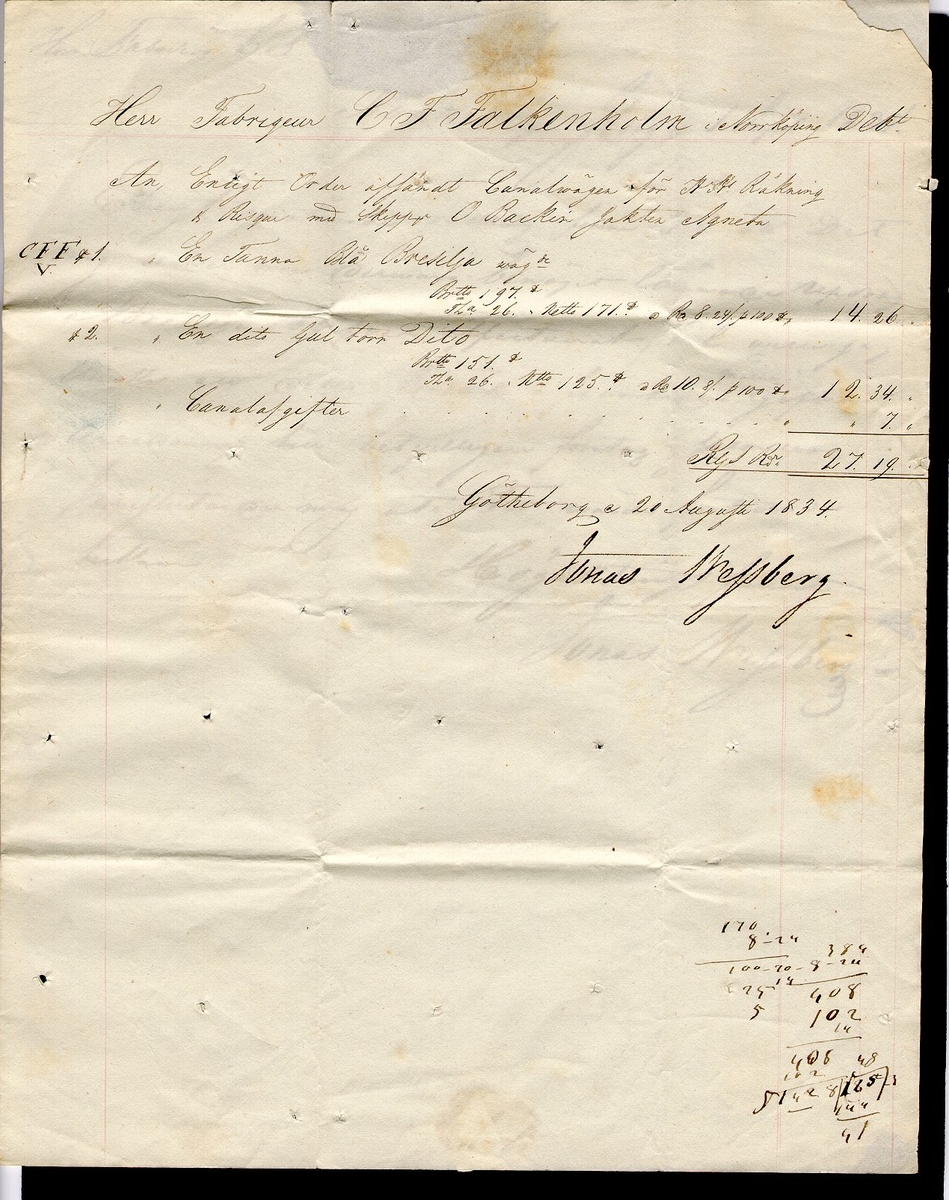 Herr Fabriqeur C F Falkenholm i Norrköping Debt
An, Enligt Order affändt Canalwägen för H Hs Räkning
& Risque med Skeppr O Backen Jakten Agneta
CFF # 1. " En Tunna Blå Bresilja wägde
V
Brtto 197. ℔
Tha 26. " Netto 171 ℔ a Rd 8.24/ p 100 ℔ 14. 26. "
# 2. " En dito Gul torr Dito
Brtto 151. ℔
Tha 26. " Ntto 125. ℔ a Rd 10. p 100 ℔ 12. 34. "
" Canalafgifter . . . . . " " 7. "
Rgs Rdr 27. 19. "
Götheborg d 20 Augusti 1834.
Jonas Wessberg.
170
8-24
384
100-20-8-24
14
25
408
5
102
14
48
125
144
41